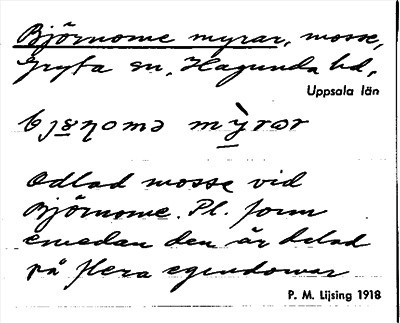 Björnome myrar, mosse,
Gryta sn, Hagunda hd,
Uppsala län
Odlad mosse vid
Björnome. Pl. form
emedan den är delad
på flera egendomar
P. M. Lijsing 1918